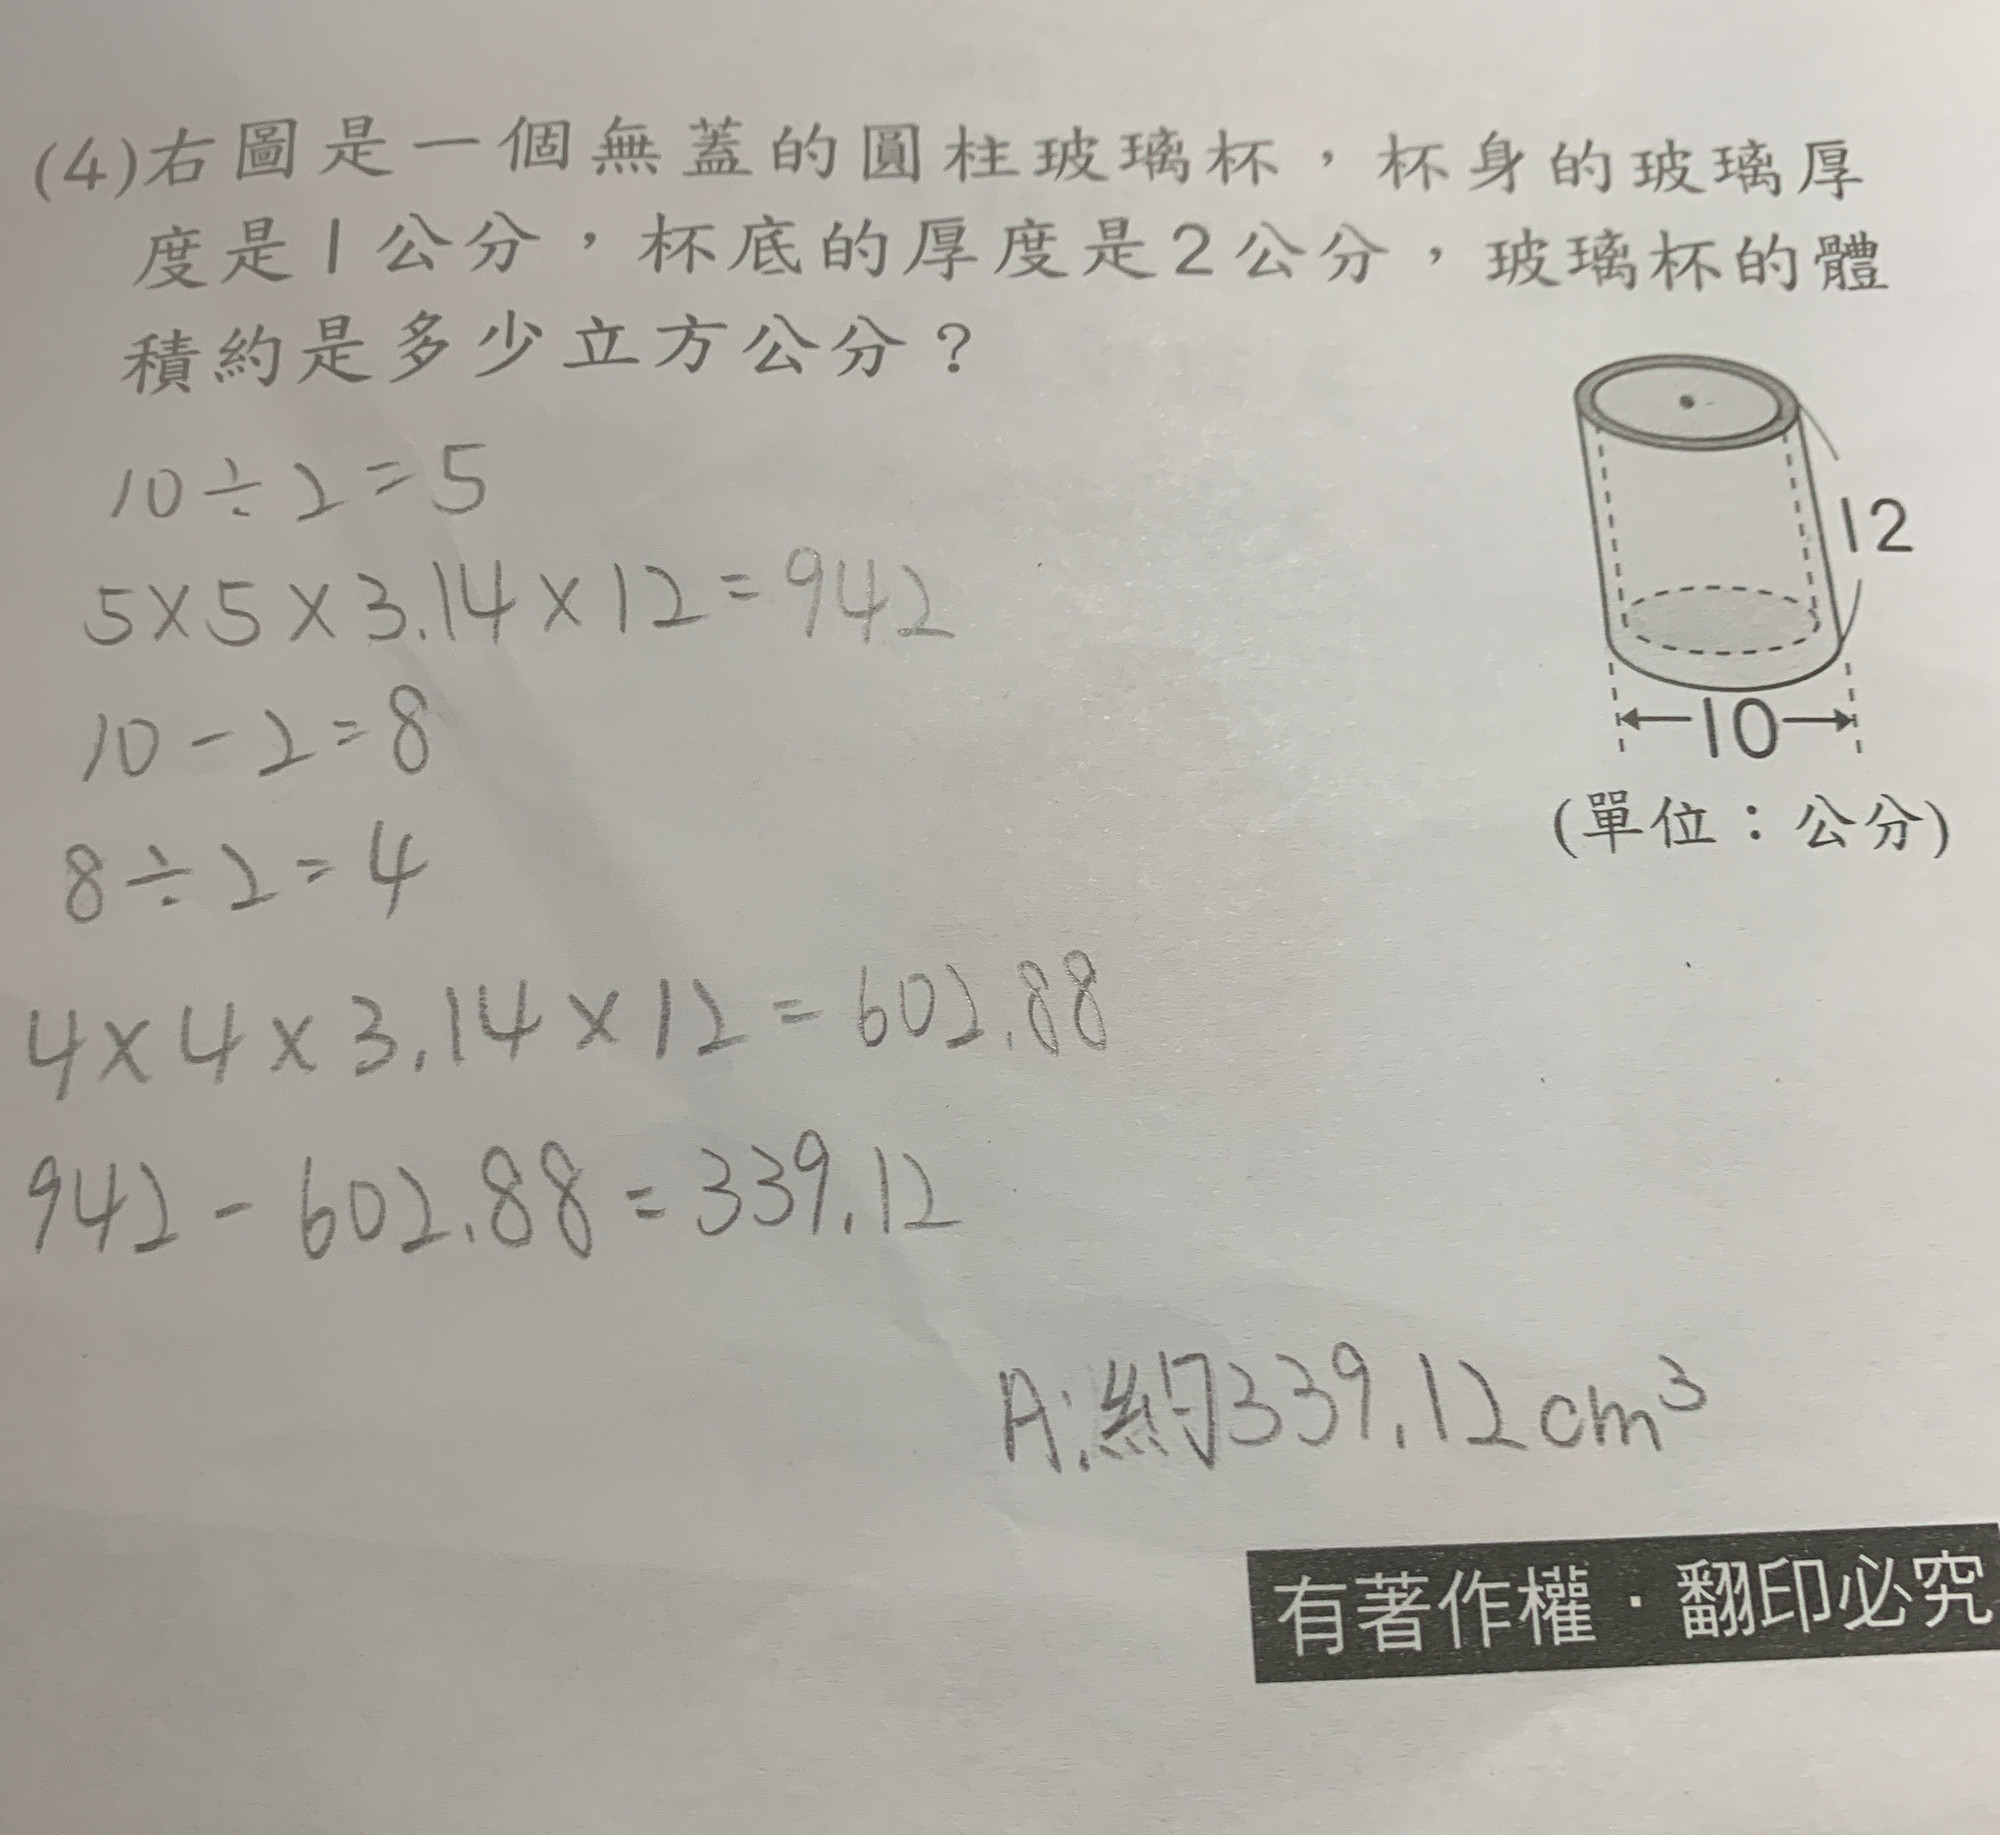 (4)右圖是一個無蓋的圓柱玻璃杯，杯身的玻璃厚
度是1公分，杯底的厚度是2公分，玻璃杯的體
積約是多少立方公分？
10÷2=5
5×5×3.14×12=942
10-2=8
8÷2=4
4×4×3.14×12=602.88
942-602.88=339.12
A:約339.12cm³
12
10
(單位：公分)
有著作權·翻印必究